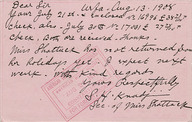 Dear Sir Urfa - Aug - 13 - 1908
Your July 21st - enclosed No 16998 £35 %
Check. also - July 31st No 17001 £ 27 %
Check, both are received. thanks.
Miss Shattuck has not returned from
her holidays yet. I expect next
week. With kind regards
Yours Respectfully
S.H.
Sec of Miss Shattuck